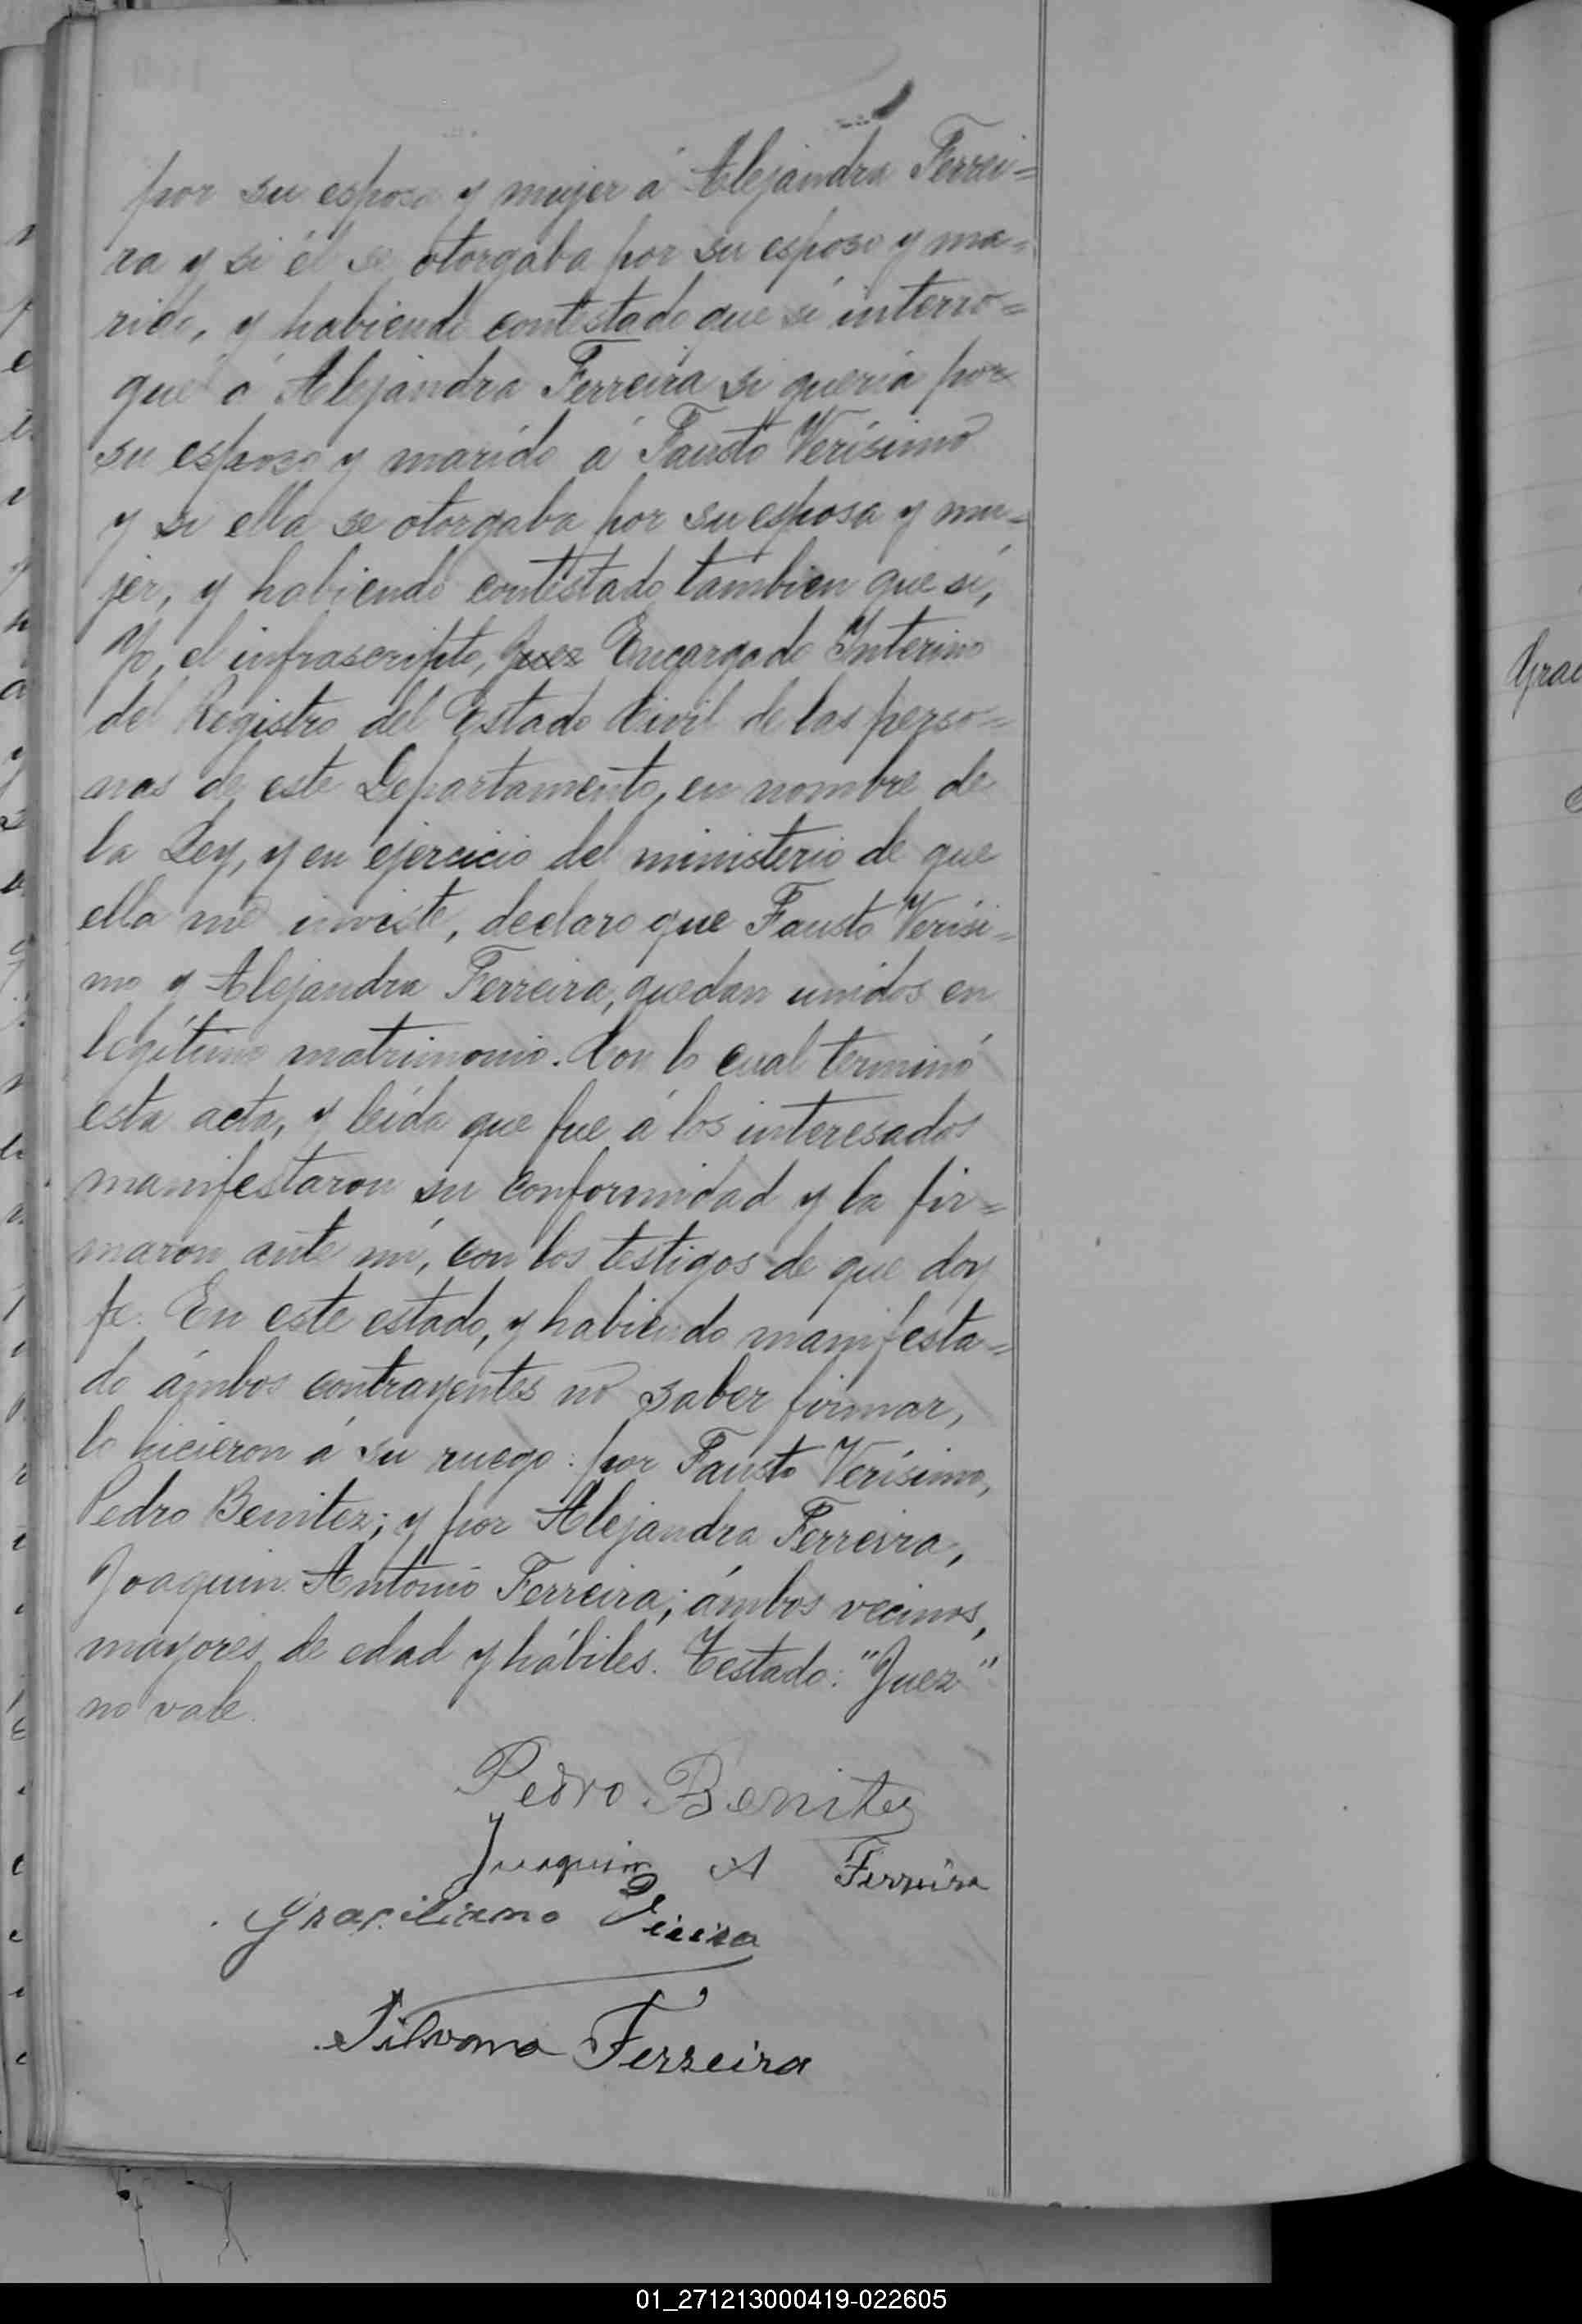 por su esposa y mujer á Alejandra Ferrei=
ra y si él se otorgaba por su esposo y ma=
rido, y habiendo contestado que sí interro=
gué á Alejandra Ferreira si queria por
su esposo y marido á Fausto Verísimo
y si ella se otorgaba por su esposa y mu=
jer, y habiendo contestado tambien que sí,
Yo, el infrascripto, Juez Encargado Interino
del Registro del Estado Civil de las perso=
nas de este Departamento, en nombre de
la Ley, y en ejercicio del ministerio de que
ella me inviste, declaro que Fausto Verísi=
mo y Alejandra Ferreira, quedan unidos en
legítimo matrimonio. Con lo cual terminó
esta acta, y leída que fue á los interesados
manifestaron su conformidad y la fir=
maron ante mí, con los testigos de que doy
fe. En este estado, y habiendo manifesta=
do ámbos contrayentes no saber firmar,
lo hicieron á su ruego: por Fausto Verísimo,
Pedro Benitez; y por Alejandra Ferreira,
Joaquin Antonio Ferreira; ámbos vecinos,
mayores de edad y hábiles. Testado: "Juez"
no vale.
Pedro Benitez
Juaquin A Ferreira
Graciliano Vieira
Silvano Ferreira
Grac
01_271213000419-022605